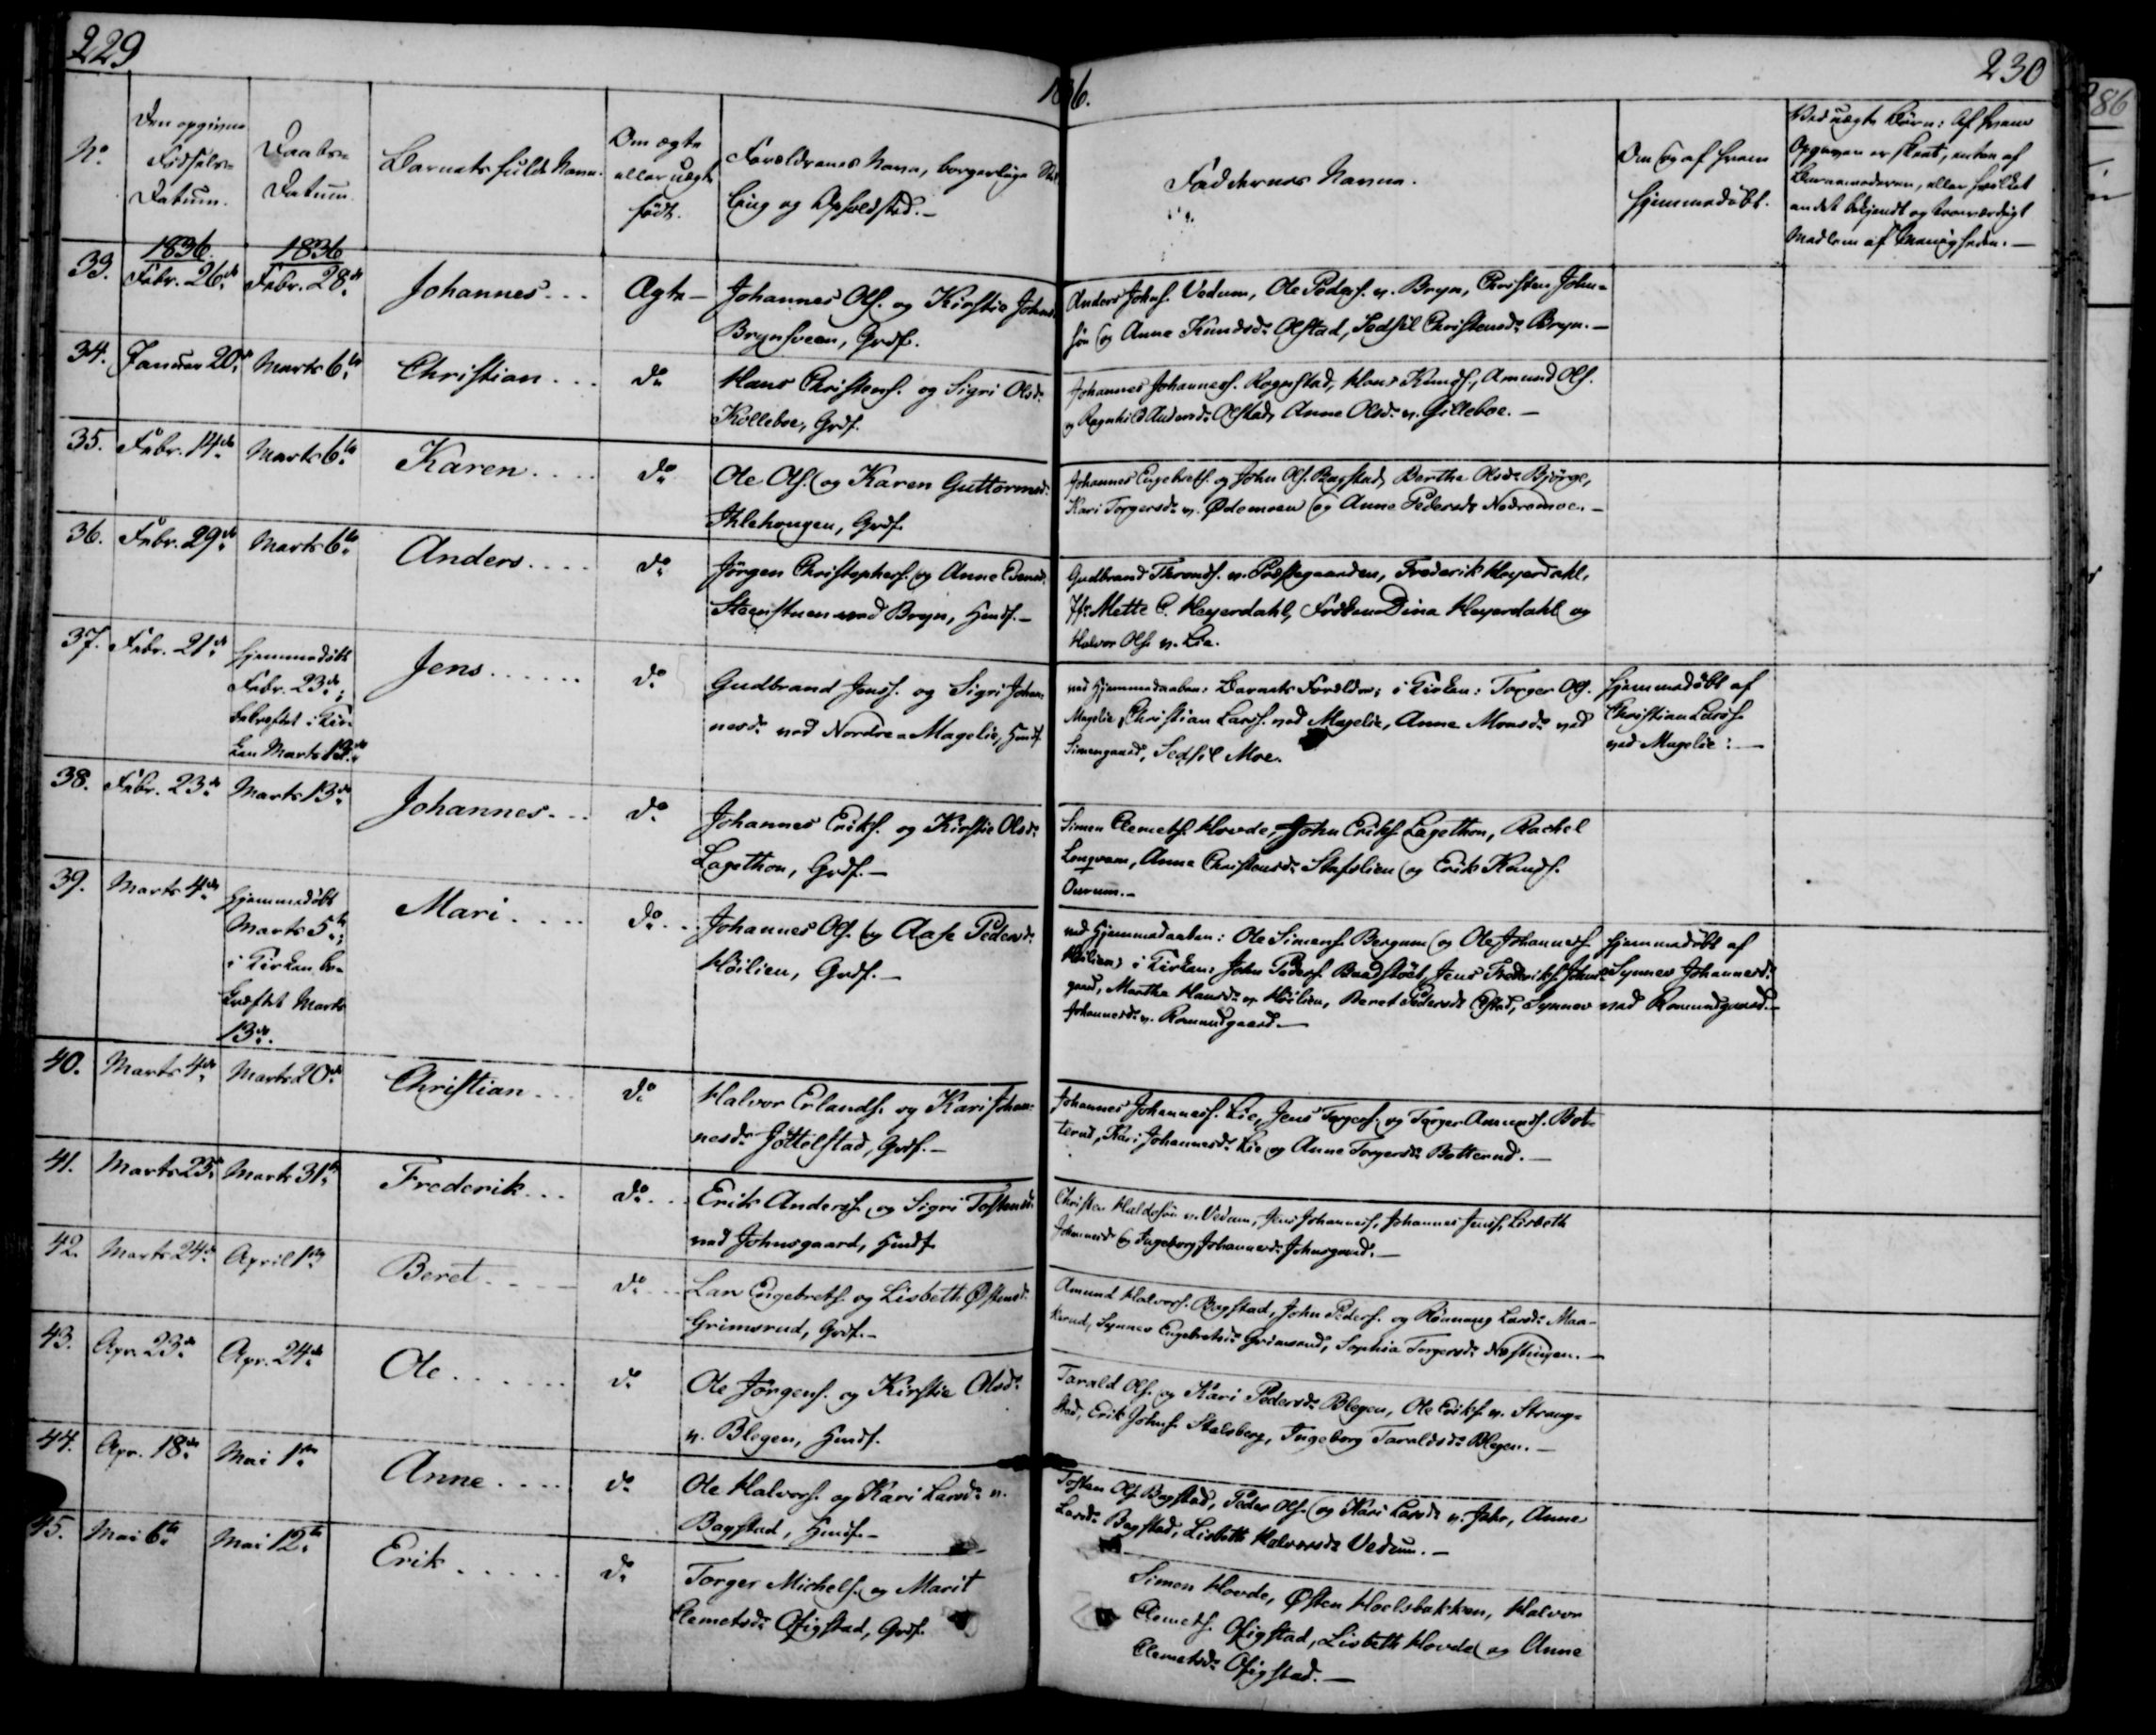 229
1836.
230
No.
Den opgivne
Födsels-
Datum.
Daabs-
Datum.
Barnets fulde Navn.
Om ægte
eller uægte
födt.
Forældrenes Navn, borgerlige Stil-
ling og Opholdsted.-
Faddernes Navne.
Om og af hvem
hjemmedöbt.
Ved uægte Börn: Af hvem
Opgaven er skeet, enten af
Barnemoderen, eller hvilket
andet bekjendt og troeværdigt
Medlem af Menigheden.-
33.
1836.
Febr. 26de
1836
Febr. 28de
Johannes...
Ægte-
Johannes Ols. og Kirstie Johns
Brynsveen, Grdf.
Anders Johns. Vedum, Ole Peders. v. Bryn, Christen John-
sön og Anne Knudsdr. Olstad, Sedsil Christensdr. Bryn.-
34.
Januar 20de
Marts 6te
Christian...
do.
Hans Christens. og Sigri Olsdr.
Kolleboe, Grdf.
Johannes Johanness. Rognstad, Hans Knuds., Amund Ols.
og Ragnhild Andersdr. Olstad, Anne Olsdr. v. Gilleboe.-
35.
Febr. 14de
Marts 6te
Karen....
do.
Ole Ols. og Karen Guttormsd.
Ihlehougen, Grdf.
Johannes Engebrets. og John Ols. Bagstad, Berthe Olsdr. Björge,
Kari Torgersdr. v. Ödemoen og Anne Pedersdr. Nedremoe.-
36.
Febr. 29de
Marts 6te
Anders....
do.
Jörgen Christophers. og Anne
Steenstuen ved Bryn, Hmdf.-
Gudbrand Thronds. v. Præstegaarden, Frederik Heyerdahl,
Mette C. Heyerdahl, Fröken Dina Heyerdahl og
Halvor Ols. v. Lie.
37.
Febr. 21de
hjemmedöbt
Febr. 23de;
bekræftet i Kir-
ken Marts 13de
Jens......
do.
Gudbrand Jenss. og Sigri Johan-
nesdr. ved Nordre Magelie, Hmdf.
ved Hjemmedaaben: Barnets Forældre; i Kirken: Torger Ols.
Magelie, Christian Larss. ved Magelie, Anne Monsdr. ved
Simengaard, Sedsil Moe.
hjemmedöbt af
Christian Larss.
ved Magelie:-
38.
Febr. 23de
Marts 13de
Johannes...
do.
Johannes Eriks. og Kirstie Olsdr.
Lagethon, Grdf.-
Simen Clemets. Hovde, John Eriks. Lagethon, Rachel
Longvam, Anne Christensdr. Stafslien og Erik Knuds.
39.
Marts 4de
hjemmedöbt
Marts 5te;
i Kirken be-
kræftet Marts
13de.
Mari....
do...
Johannes Ols. og Aase Pedersdr.
Höilien, Grdf.-
ved Hjemmedaaben: Ole Simens. Bergum og Ole Johanness.
Höilien; i Kirken: John Peders. Baadstöe, Jens Frederiks. Johns-
gaard, Marthe Hansdr. v. Höilien, Beret Pedersdr. Synnev
Johannesdr. v. Romundgaard.-
hjemmedöbt af
Synnev Johannesdr.
ved Romundgaard.-
40.
Marts 4de
Marts 20de
Christian...
do.
Halvor Erlands. og Kari Johan-
nesdr. Jöttelstad, Grdf.-
Johannes Johanness. Lie, Jens Torgers. og Torger Amunds. Bot-
terud, Kari Johannesdr. Lie og Anne Torgersdr. Botterud.-
41.
Marts 23de
Marts 31te
Frederik...
do...
Erik Anderss. og Sigri Tostensdr.
ved Johnsgaard, Hmdf.
Christen Haldosön v. Vedum, Jens Johanness., Johannes Jenss., Lisbeth
Johannesd. og Ingeborg Johannesdr. Johnsgaard.-
42.
Marts 24de
April 1ste
Beret....
do...
Lars Engebrets. og Lisbeth Östensdr.
Grimsrud, Grdf.-
Amund Halvors. Bagstad, John Peders. og Rönnaug Larsdr. Maa-
Synnev Engebretsdr. Grimsrud, Sophia Torgersdr. Nestingen.-
43.
Apr. 23de
Apr. 24de
Ole......
do.
Ole Jörgens. og Kirstie Olsdr.
v. Blegen, Hmdf.
Tarald Ols. og Kari Pedersdr. Blegen, Ole Eriks. v. Strang-
stad, Erik Johns. Stalsberg, Ingeborg Taraldsdr. Blegen.-
44.
Apr. 18de
Mai 1ste
Anne....
do
Ole Halvors. og Kari Larsdr. v.
Bagstad, Hmdf.-
Tosten Ols. Bagstad, Peder Ols. og Kari Larsdr. v. Anne
Larsdr. Bagstad, Lisbeth Halvorsdr. Vedum.-
45.
Mai 6te
Mai 12te
Erik.....
do.
Torger Michels. og Marit
Clemetsdr. Ofigstad, Grdf.
Simen Hovde, Östen Hoelsbakken, Halvor
Clemets. Ofigstad, Lisbeth Hovde og Anne
Clemetsdr. Ofigstad.-